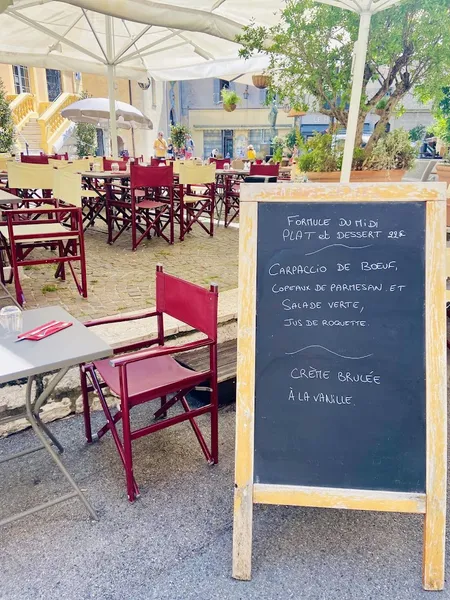 FORMULE DU MIDI
PLAT et DESSERT 22€
CARPACCIO DE BŒUF,
COPEAUX DE PARMESAN. ET
SALADE VERTE,
JUS DE ROQUETTE.
CRÈME BRULÉE
À LA VANILLE.